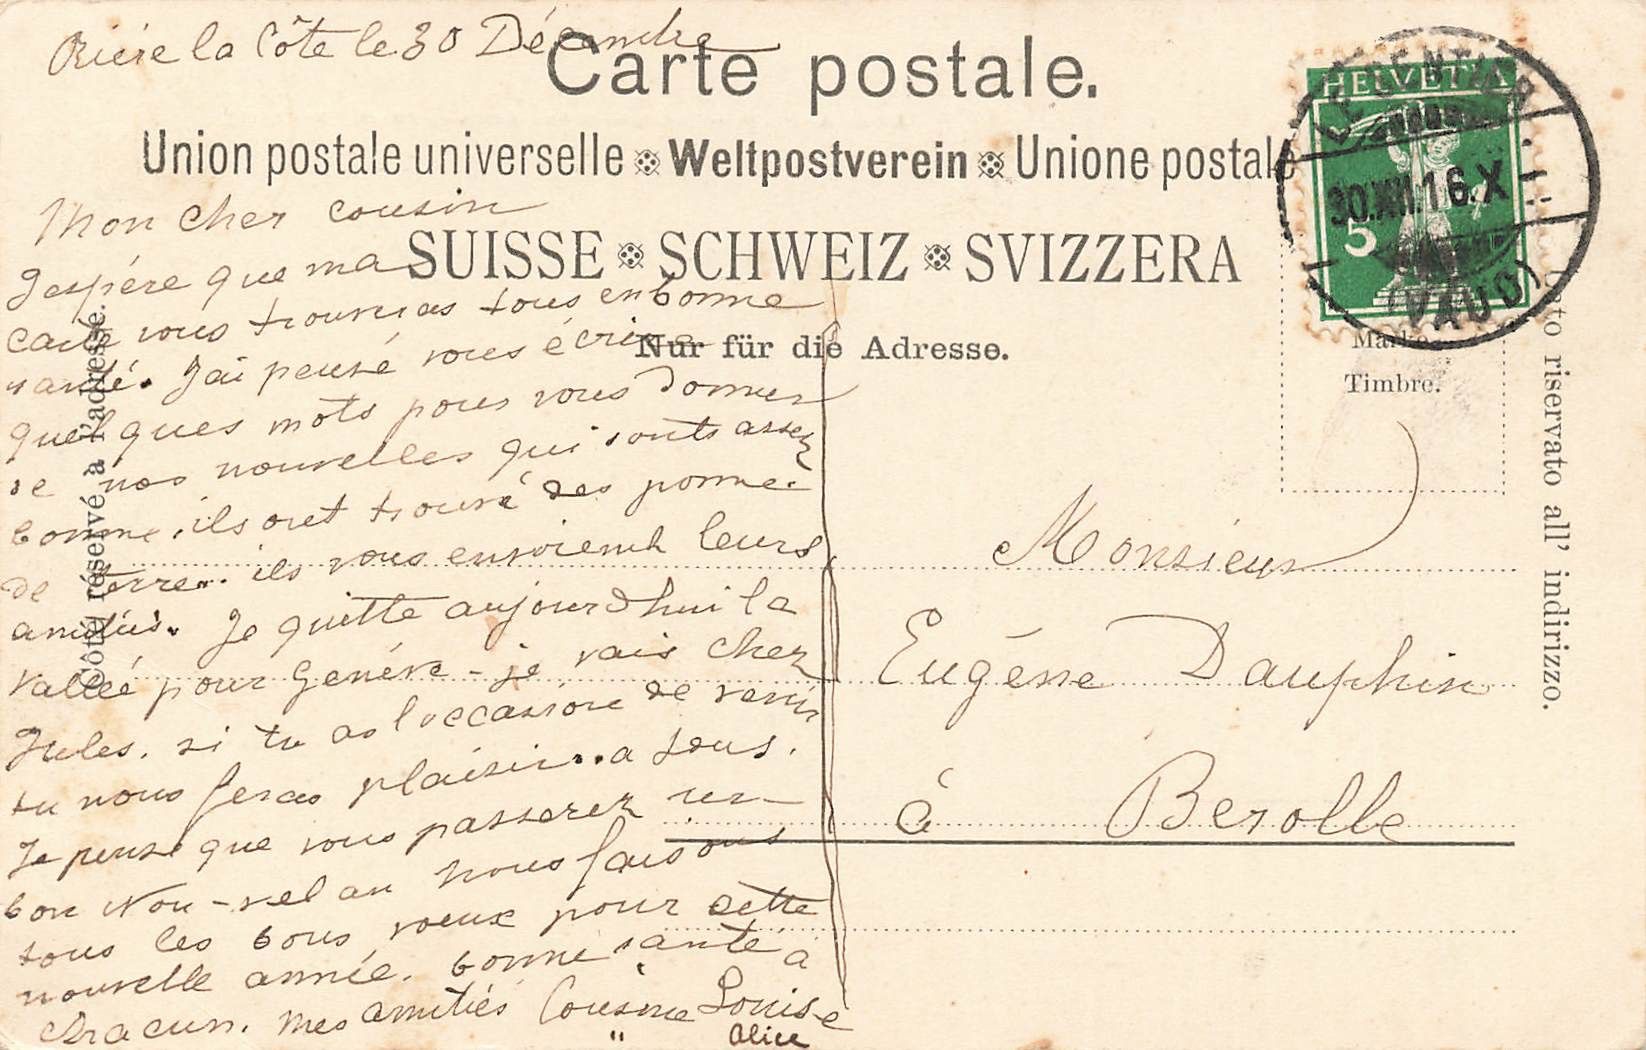 le 30 Décembre
Carte postale.
Union postale universelle Weltpostverein Unione postale
SUISSE SCHWEIZ SVIZZERA
Nur für die Adresse.
Côté réservé à l'adresse.
Lato riservato all' indirizzo.
Marke.
Timbre.
HELVETIA
5
LE SENTIER
30.XII.16.X
(VAUD)
Mon cher cousin
J'espère que ma
carte vous trouveras tous en bonne
santé. J'ai pensé vous écrire
quelques mots pour vous donner
de nos nouvelles qui sonts assez
bonne. ils ont trouvé des pomme.
de terre. ils vous envoienth leurs
amitiés. Je quitte aujourd'hui la
Vallée pour Genéve - je vais chez
Jules. si tu as l'occasion de venir
tu nous feras plaisir.. a tous.
Je pense que vous passerez un
bon Nou-vel an nous faisons
tous les bons voeux pour cette
nouvelle année. bonne santé à
chacun. mes amitiés Cousine Louise
" Alice
Monsieur
Eugéne Dauphin
á Berolle